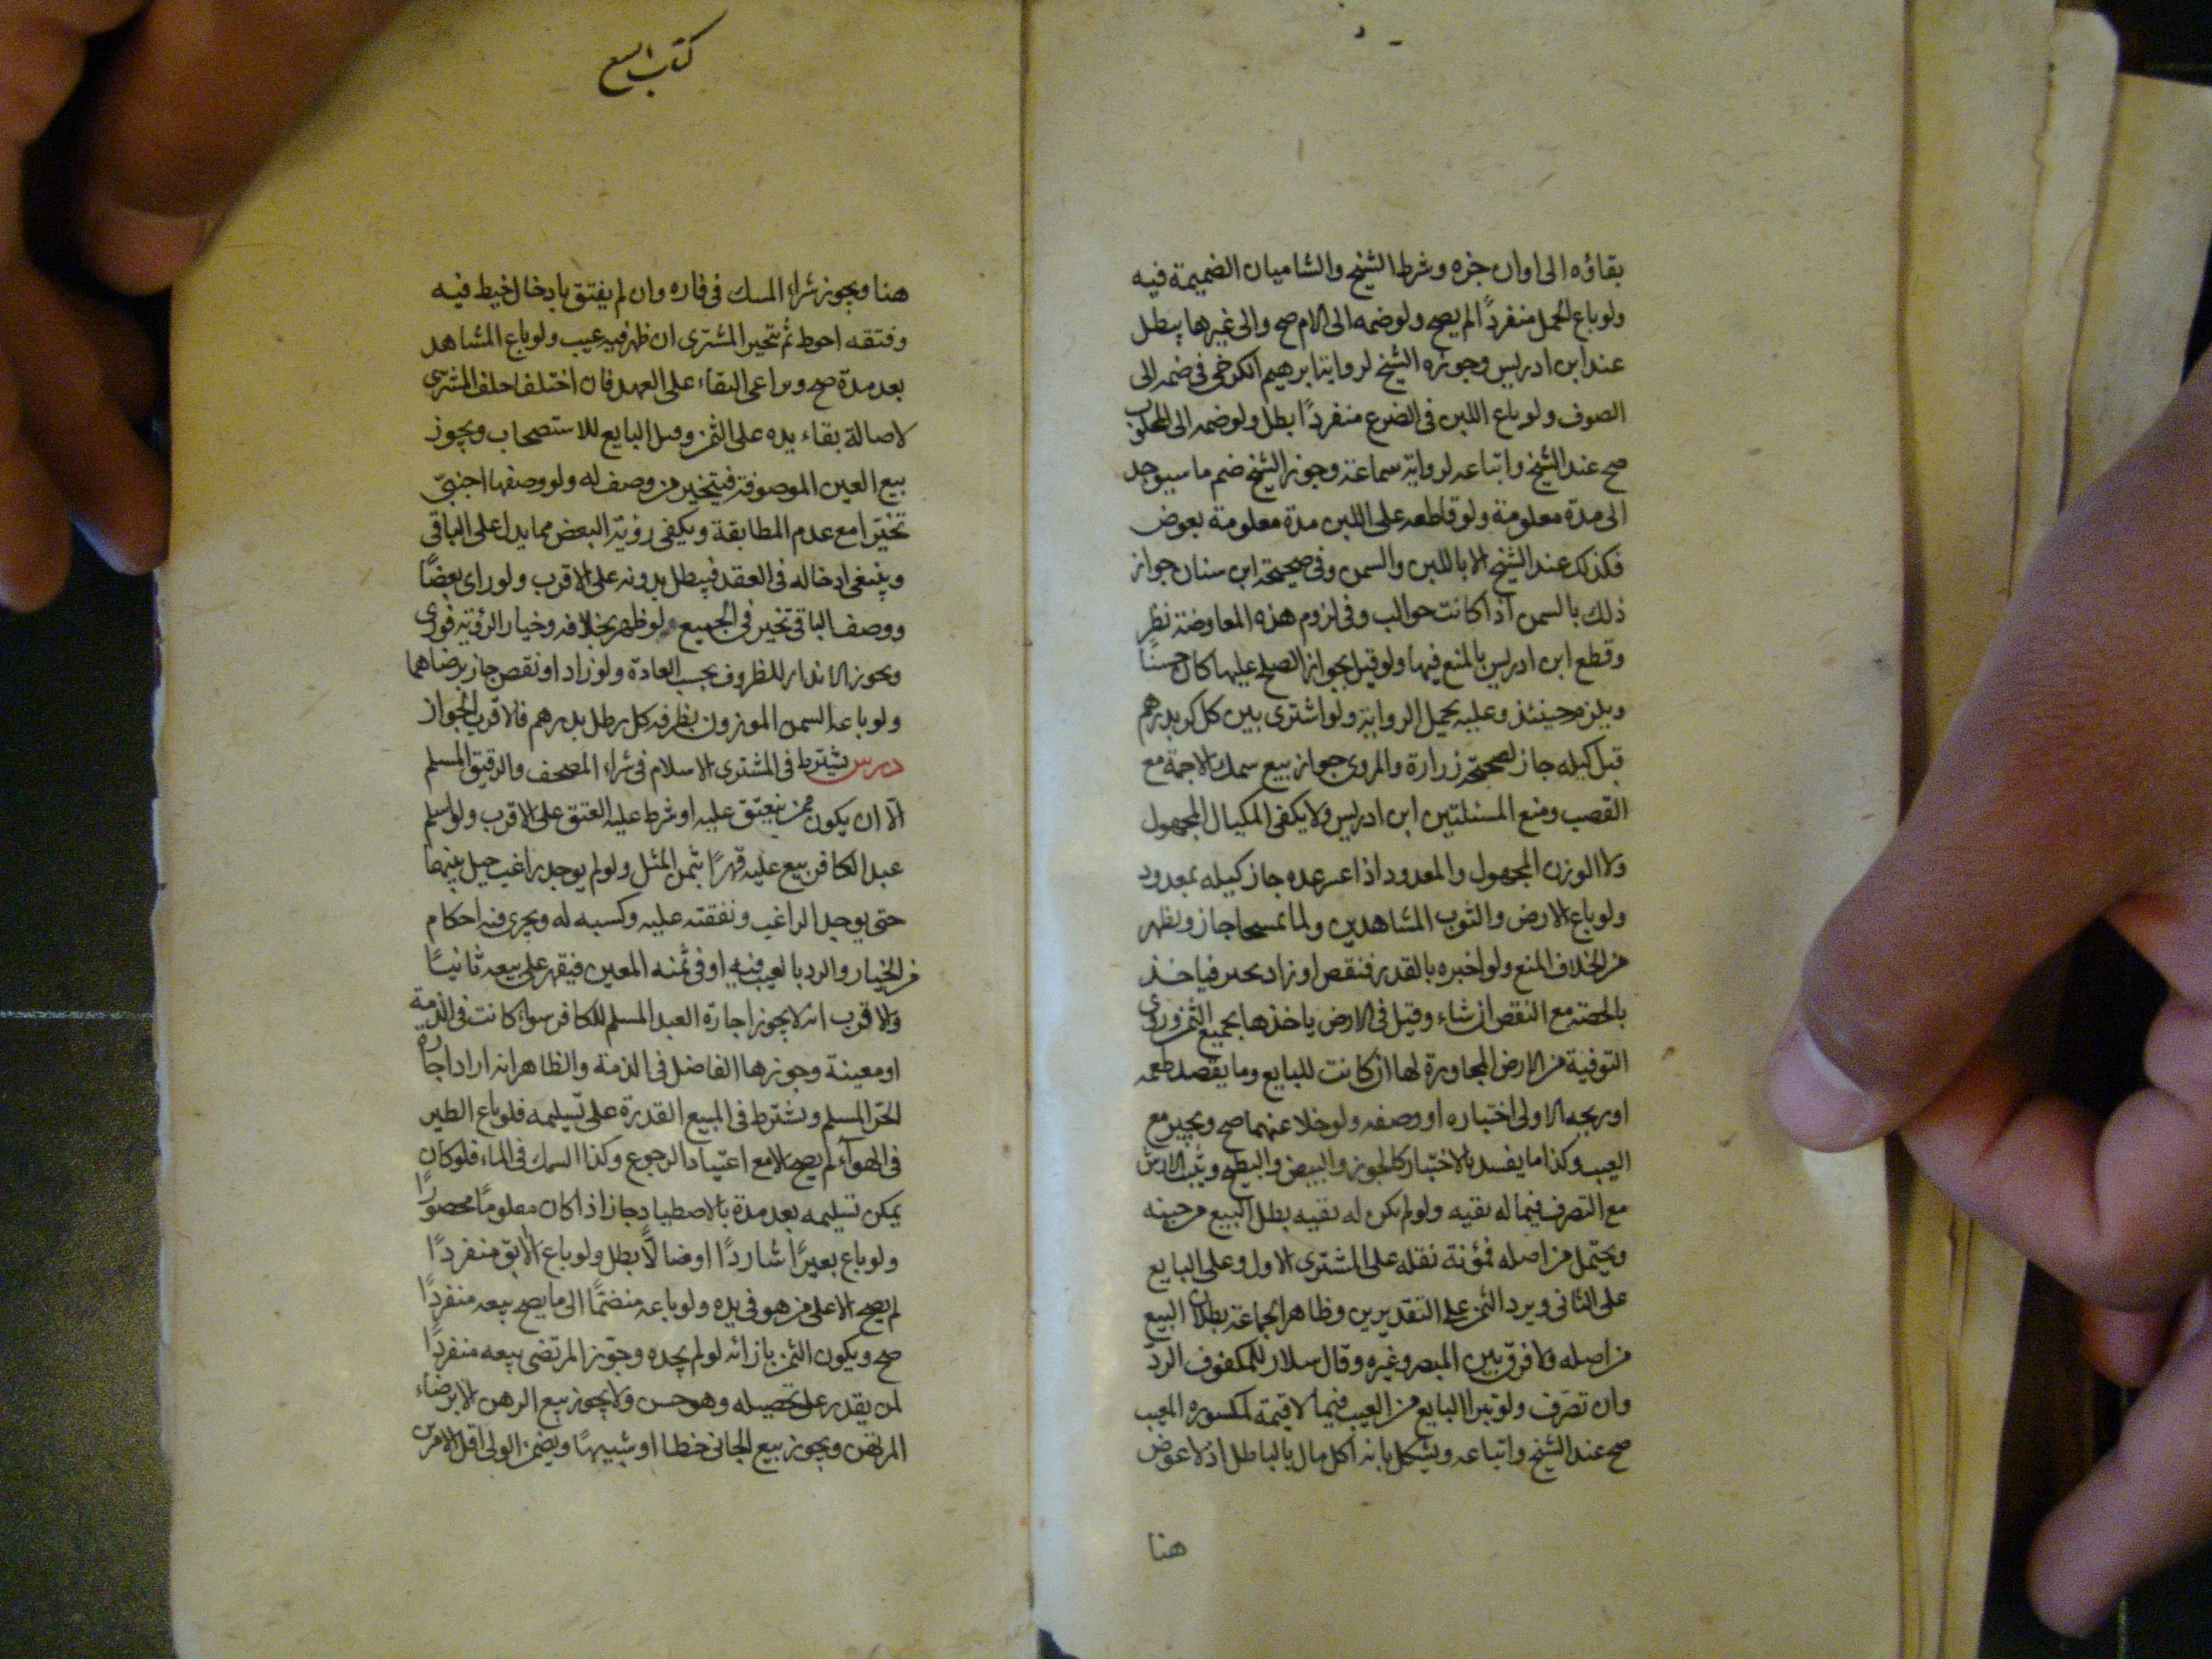 بقاؤه الى اوان جزه وشرط الشيخ والشاميان الضميمة فيه
ولو باع الحمل منفرداً لم يصح ولو ضمه الى الام صح والى غيرها يبطل
عند ابن ادريس وجوزه الشيخ لرواية ابرهيم الكرخى فى ضمه الى
الصوف ولو باع اللبن فى الضرع منفرداً بطل ولو ضمه الى المحلوب
صح عند الشيخ واتباعه لرواية سماعة وجوز الشيخ ضم ما سيوجد
الى مدة معلومة ولو قاطعه على اللبن مدة معلومة بعوض
فكذلك عند الشيخ الا باللبن والسمن وفى صحيحة ابن سنان جواز
ذلك بالسمن اذا كانت حوالب وفى لزوم هذه المعاوضة نظر
وقطع ابن ادريس بالمنع فيها ولو قيل بجواز الصلح عليها كان حسنًا
ويلزم حينئذ وعليه يحمل الرواية ولو اشترى بتين كل كر بدرهم
قبل كيله جاز لصحيحة زرارة والمروى جواز بيع سمك الاجمة مع
القصب ومنع المسئلتين ابن ادريس ولا يكفى المكيال المجهول
ولا الوزن المجهول والمعدود اذا عسر عده جاز كيله بمعدود
ولو باع الارض والثوب المشاهدين ولما يمسحا جاز ويظهر
من الخلاف المنع ولو اخبره بالقدر فنقص او زاد تخير فياخذ
بالحصة مع النقص ان شاء وقيل فى الارض ياخذها بجميع الثمن وروى
التوفية من الارض المجاورة لها ان كانت للبايع وما يقصد طعمه
او ريحه الاولى اختباره او وصفه ولو خلا عنهما صح ويتخير مع
العيب وكذا ما يفسد بالاختبار كالجوز والبيض والبطيخ ويثبت الارش
مع التصرف فيما له بقيه ولو لم يكن له بقيه بطل البيع من حينه
ويحتمل من اصله فمؤنة نقله على المشترى الاول وعلى البايع
على الثانى ويرد الثمن على التقديرين وظاهر الجماعة بطلان البيع
من اصله ولا فرق بين المبصر وغيره وقال سلار للمكفوف الرد
وان تصرف ولو تبرا البايع من العيب فيما لا قيمة لمكسوره المعيب
صح عند الشيخ واتباعه ويشكل بانه اكل مال بالباطل اذ لا عوض
هنا
كتاب البيع
هنا ويجوز شراء المسك فى فاره وان لم يفتق بادخال خيط فيه
وفتقه احوط ثم يتخير المشترى ان ظهر فيه عيب ولو باع المشاهد
بعد مدة صح ويراعى البقاء على العهد فان اختلفا حلف المشترى
لاصالة بقاء يده على الثمن وقيل البايع للاستصحاب ويجوز
بيع العين الموصوفة فيتخير من وصف له ولو وصفها اجنبىّ
تخيّرا مع عدم المطابقة ويكفى رؤية البعض مما يدل على الباقى
وينبغى ادخاله فى العقد فيبطل بدونه على الاقرب ولو راى بعضًا
ووصف الباقى تخير فى الجميع لو ظهر بخلافه وخيار الرؤية فورى
ويجوز الاندار للظروف بحسب العادة ولو زاد او نقص جاز برضاهما
ولو باعه السمن الموزون بظرفه كل رطل بدرهم فالاقرب الجواز
درس يشترط فى المشترى الاسلام فى شراء المصحف والرقيق المسلم
الّا ان يكون ممن ينعتق عليه او شرط عليه العتق على الاقرب ولو اسلم
عبد الكافر بيع عليه قهرًا بثمن المثل ولو لم يوجد راغب حيل بينهما
حتى يوجد الراغب ونفقته عليه وكسبه له ويجرى فيه احكام
من الخيار والرد بالعيب فيه او فى ثمنه المعين فيقهر على بيعه ثانيًا
والاقرب انه لا يجوز اجارة العبد المسلم للكافر سواء كانت فى الذمة
او معينة وجوزها الفاضل فى الذمة والظاهر انه اراد اجارة
الحرّ المسلم ويشترط فى المبيع القدرة على تسليمه فلو باع الطير
فى الهوآء لم يصح الا مع اعتياد الرجوع وكذا السمك فى الماء فلو كان
يمكن تسليمه بعد مدة بالاصطياد جاز اذا كان معلومًا محصورًا
ولو باع بعيرًا شاردًا او ضالًّا بطل ولو باع الابق منفردًا
لم يصح الا على من هو فى يده ولو باعه منضمًّا الى ما يصح بيعه منفردًا
صح ويكون الثمن بازائه لو لم يجده وجوّز المرتضى بيعه منفردًا
لمن يقدر على تحصيله وهو حسن ولا يجوز بيع الرهن الا برضاء
المرتهن ويجوز بيع الجانى خطا او شبيهًا ويضمن الولى اقل الامرين